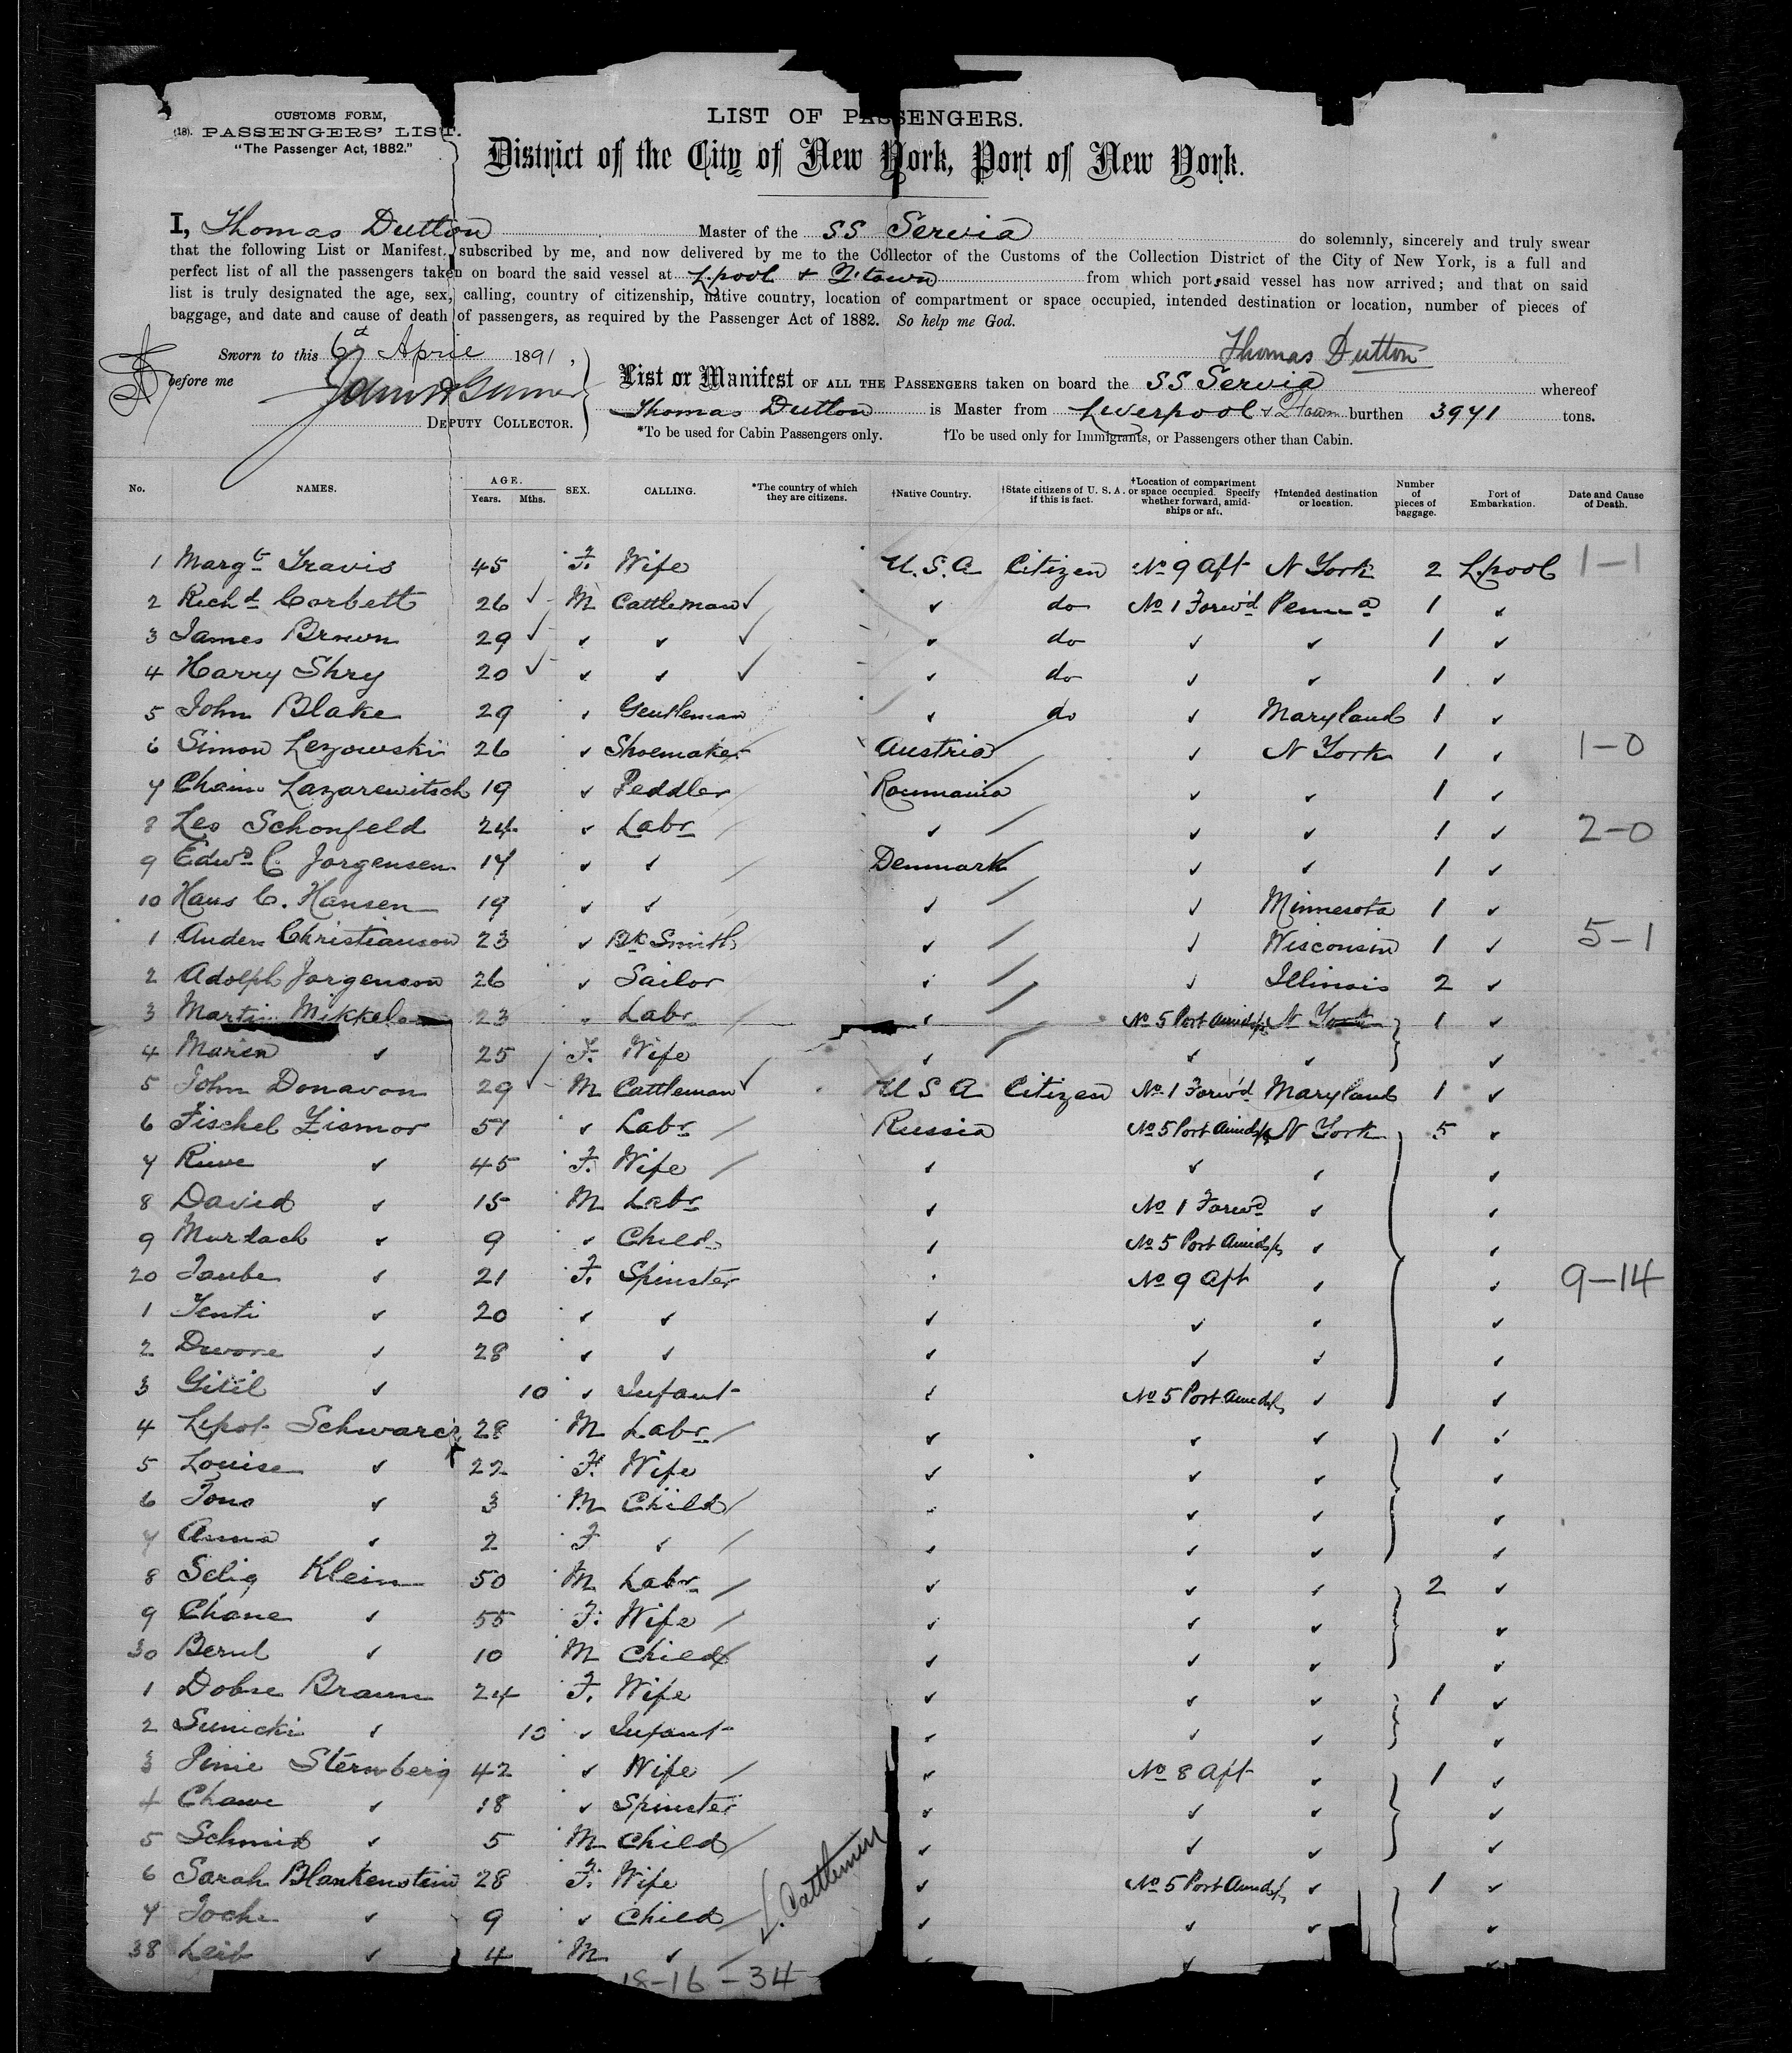 CUSTOMS FORM,
(18). PASSENGERS' LIST.
"The Passenger Act, 1882."
LIST OF PASSENGERS.
District of the City of New York, Port of New York.
I, Thomas Dutton Master of the SS Servia do solemnly, sincerely and truly swear
that the following List or Manifest, subscribed by me, and now delivered by me to the Collector of the Customs of the Collection District of the City of New York, is a full and
perfect list of all the passengers taken on board the said vessel at L.pool & Q.town from which port, said vessel has now arrived; and that on said
list is truly designated the age, sex, calling, country of citizenship, native country, location of compartment or space occupied, intended destination or location, number of pieces of
baggage, and date and cause of death of passengers, as required by the Passenger Act of 1882. So help me God.
Sworn to this 6th April 1891, Thomas Dutton
before me
DEPUTY COLLECTOR.
List or Manifest OF ALL THE PASSENGERS taken on board the SS Servia whereof
Thomas Dutton is Master from Liverpool & Q'town burthen 3971 tons.
*To be used for Cabin Passengers only. †To be used only for Immigrants, or Passengers other than Cabin.
No. NAMES. AGE. Years. Mths. SEX. CALLING. *The country of which they are citizens. †Native Country. †State citizens of U. S. A. if this is fact. †Location of compartment or space occupied. Specify whether forward, amidships or aft. †Intended destination or location. Number of pieces of baggage. Port of Embarkation. Date and Cause of Death.
1 Margt Travis 45 F. Wife U.S.A Citizen No 9 Aft N York 2 L.pool 1-1
2 Richd Corbett 26 ✓ M Cattleman ✓ ✓ do No 1 Forw'd Penna 1 ✓
3 James Brown 29 ✓ ✓ ✓ ✓ ✓ do ✓ ✓ 1 ✓
4 Harry Shry 20 ✓ ✓ ✓ ✓ ✓ do ✓ ✓ 1 ✓
5 John Blake 29 ✓ Gentleman ✓ do ✓ Maryland 1 ✓
6 Simon Lezowski 26 ✓ Shoemaker Austria ✓ N York 1 ✓ 1-0
7 Chaim Lazarewitsch 19 ✓ Peddler Roumania ✓ ✓ 1 ✓
8 Leo Schonfeld 24 ✓ Labr ✓ ✓ ✓ 1 ✓ 2-0
9 Edwd C. Jorgensen 17 ✓ ✓ Denmark ✓ ✓ 1 ✓
10 Hans C. Hansen 19 ✓ ✓ ✓ ✓ Minnesota 1 ✓
1 Anders Christianson 23 ✓ Bk Smith ✓ ✓ Wisconsin 1 ✓ 5-1
2 Adolph Jorgenson 26 ✓ Sailor ✓ ✓ Illinois 2 ✓
3 Martin 23 ✓ Labr ✓ No 5 Port Amids N York 1 ✓
4 Maren ✓ 25 F. Wife ✓ ✓ ✓ ✓
5 John Donavon 29 ✓ M Cattleman ✓ U S A Citizen No 1 Forw'd Maryland 1 ✓
6 Fischel Zismor 51 ✓ Labr Russia No 5 Port Amids N York 5 ✓
7 Riwe ✓ 45 F. Wife ✓ ✓ ✓ ✓
8 David ✓ 15 M Labr ✓ No 1 Forwd ✓ ✓
9 Murdach ✓ 9 ✓ Child ✓ No 5 Port Amids ✓ ✓
20 Taube ✓ 21 F. Spinster No 9 Aft ✓ ✓ 9-14
1 Tenti ✓ 20 ✓ ✓ ✓ ✓ ✓ ✓
2 Dwore ✓ 28 ✓ ✓ ✓ ✓ ✓ ✓
3 Gitil ✓ 10 ✓ Infant ✓ No 5 Port Amids ✓ ✓
4 Lipot Schwarcz 28 M Labr ✓ ✓ ✓ 1 ✓
5 Louise ✓ 22 F. Wife ✓ ✓ ✓ ✓
6 Fono ✓ 3 M Child ✓ ✓ ✓ ✓
7 Anna ✓ 2 F ✓ ✓ ✓ ✓ ✓
8 Selig Klein 50 M Labr ✓ ✓ ✓ 2 ✓
9 Chane ✓ 55 F. Wife ✓ ✓ ✓ ✓
30 Berul ✓ 10 M Child ✓ ✓ ✓ ✓
1 Dobre Braun 24 F. Wife ✓ ✓ ✓ 1 ✓
2 Sunicki ✓ 10 ✓ Infant ✓ ✓ ✓ ✓
3 Pinie Sternberg 42 ✓ Wife ✓ No 8 Aft ✓ 1 ✓
4 Chawe ✓ 18 ✓ Spinster ✓ ✓ ✓ ✓
5 Schmid ✓ 5 M Child ✓ ✓ ✓ ✓
6 Sarah Blankenstein 28 F. Wife ✓ No 5 Port Amids ✓ 1 ✓
7 Toche ✓ 9 ✓ Child ✓ ✓ ✓ ✓
38 Leib ✓ 4 M ✓ ✓
✓. Cattlemen
18-16-34